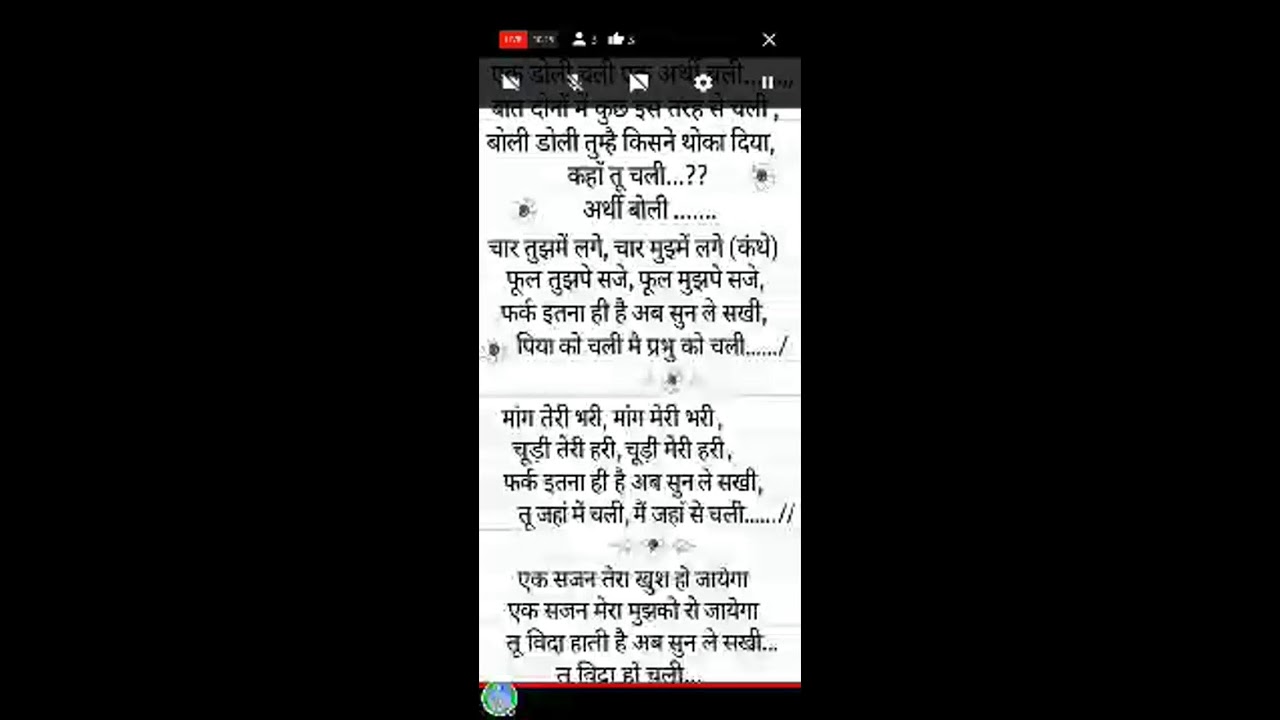 LIVE
3 3
एक डोली चली एक अर्थी चली........
बात दोनों में कुछ इस तरह से चली ,
बोली डोली तुम्है किसने धोका दिया,
कहाँ तू चली...??
अर्थी बोली .......
चार तुझमें लगे, चार मुझमें लगे (कंधे)
फूल तुझपे सजे, फूल मुझपे सजे,
फर्क इतना ही है अब सुन ले सखी,
पिया को चली मै प्रभु को चली....../
मांग तेरी भरी, मांग मेरी भरी,
चूड़ी तेरी हरी, चूड़ी मेरी हरी,
फर्क इतना ही है अब सुन ले सखी,
तू जहां में चली, मैं जहां से चली......//
एक सजन तेरा खुश हो जायेगा
एक सजन मेरा मुझको रो जायेगा
तू विदा हाती है अब सुन ले सखी...
तू विदा हो चली...